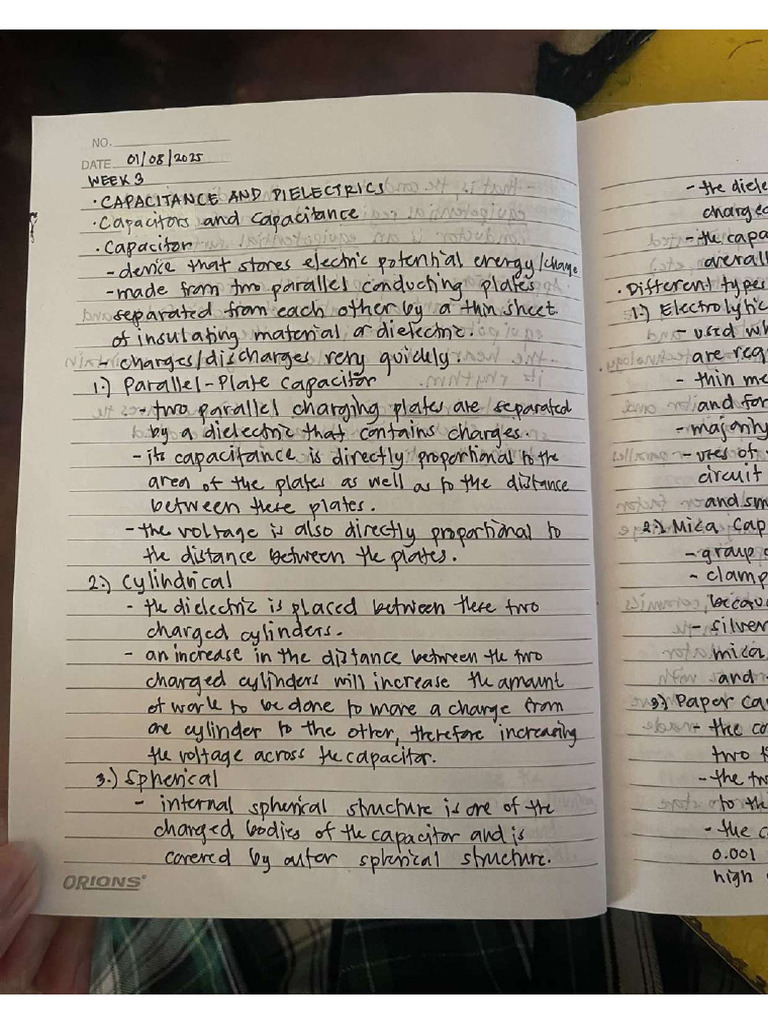 NO.
DATE 01/08/2025
WEEK 3
• CAPACITANCE AND DIELECTRICS
• Capacitors and Capacitance
• Capacitor
- device that stores electric potential energy/charge
- made from two parallel conducting plates
separated from each other by a thin sheet
of insulating material or dielectric.
- charges/discharges very quickly.
1.) Parallel-Plate Capacitor
- two parallel charging plates are separated
by a dielectric that contains charges.
- its capacitance is directly proportional to the
area of the plates as well as to the distance
between these plates.
- the voltage is also directly proportional to
the distance between the plates.
2.) Cylindrical
- the dielectric is placed between these two
charged cylinders.
- an increase in the distance between the two
charged cylinders will increase the amount
of work to be done to move a charge from
one cylinder to the other, therefore increasing
the voltage across the capacitor.
3.) Spherical
- internal spherical structure is one of the
charged bodies of the capacitor and is
covered by outer spherical structure.
ORIONS
- the
charged
- the
overall
• Different types
1.) Electrolytic
- used
are
- thin
and
- majority
- uses of
circuit
and
2.) Mica
- group
- clamp
- silver
mica
and
3.) Paper
- the
two
- the
to
- the
0.001
high